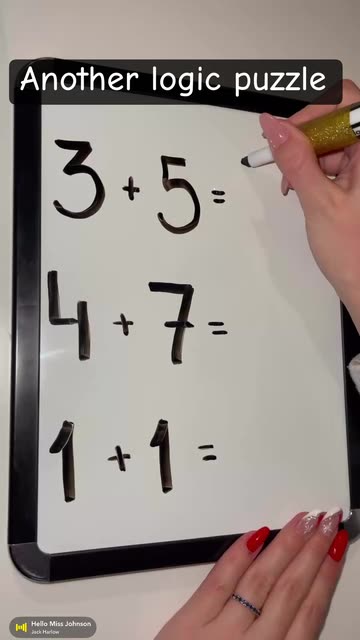 Another logic puzzle
3 + 5 =
4 + 7 =
1 + 1 =
Hello Miss Johnson
Jack Harlow